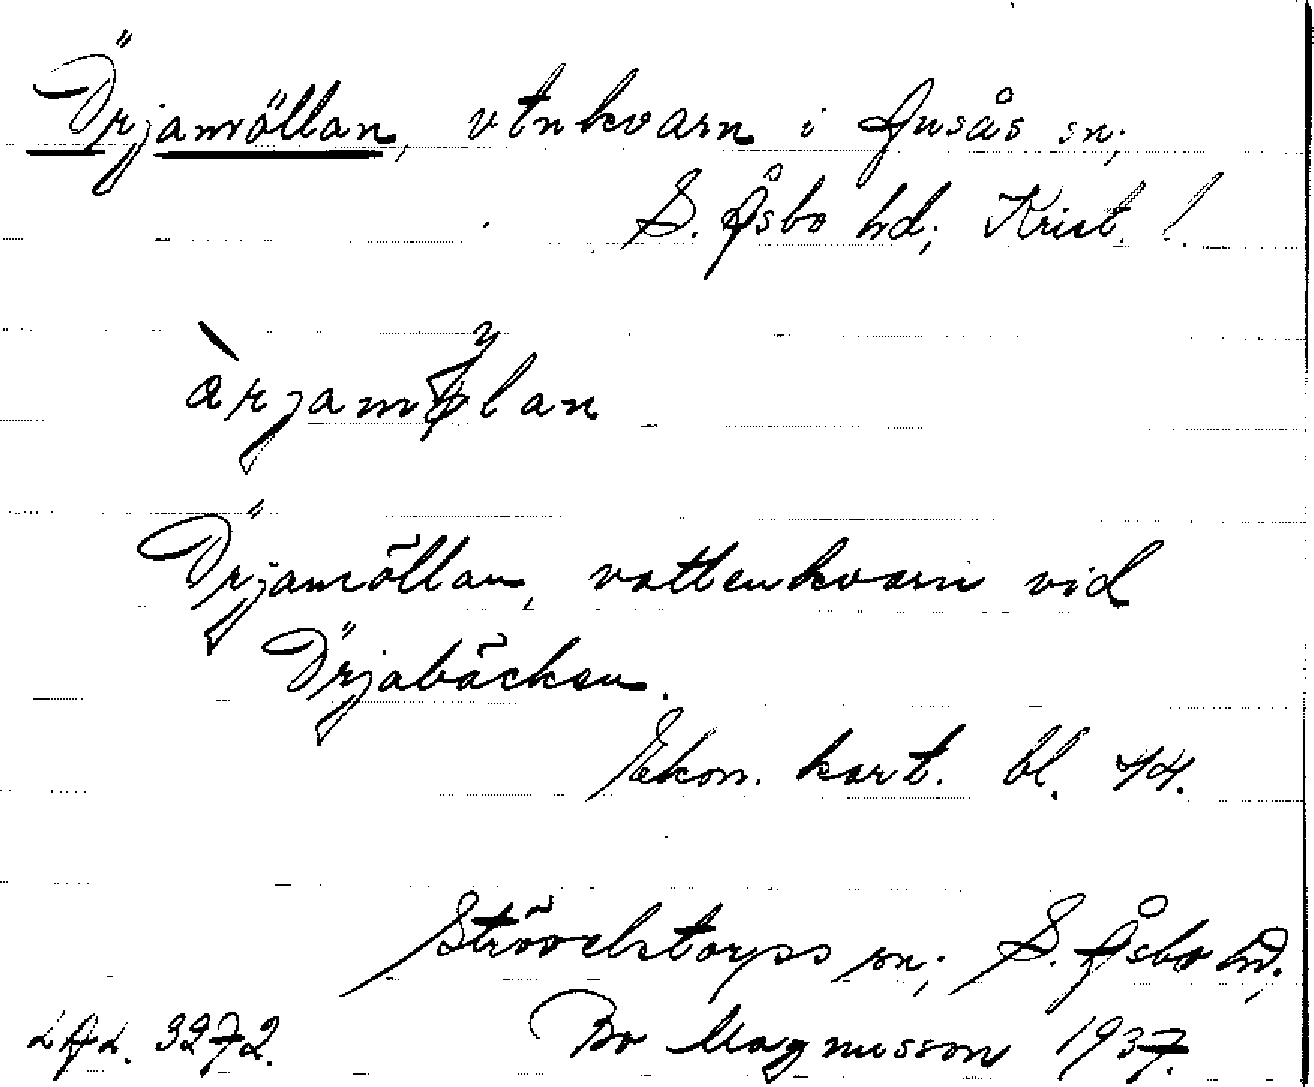 Örjamöllan, vtnkvarn i Ausås sn;
S. Åsbo hd; Krist. l.
àrjamølan
Örjamöllan, vattenkvarn vid
Örjabäcken.
Ekon. kart. bl. 44.
Strövelstorps sn; S. Åsbo hd;
LAL. 3272. Bo Magnusson 1937.